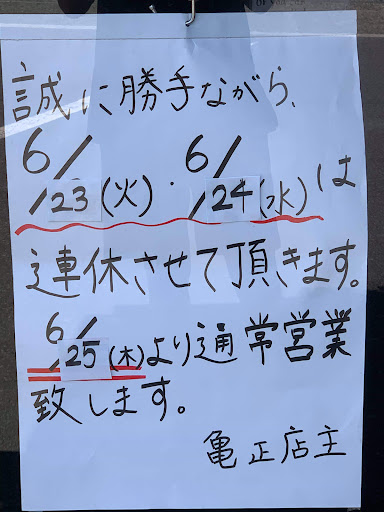 誠に勝手ながら、
6/23(火)・6/24(水)は
連休させて頂きます。
6/25(木)より通常営業
致します。
亀正店主